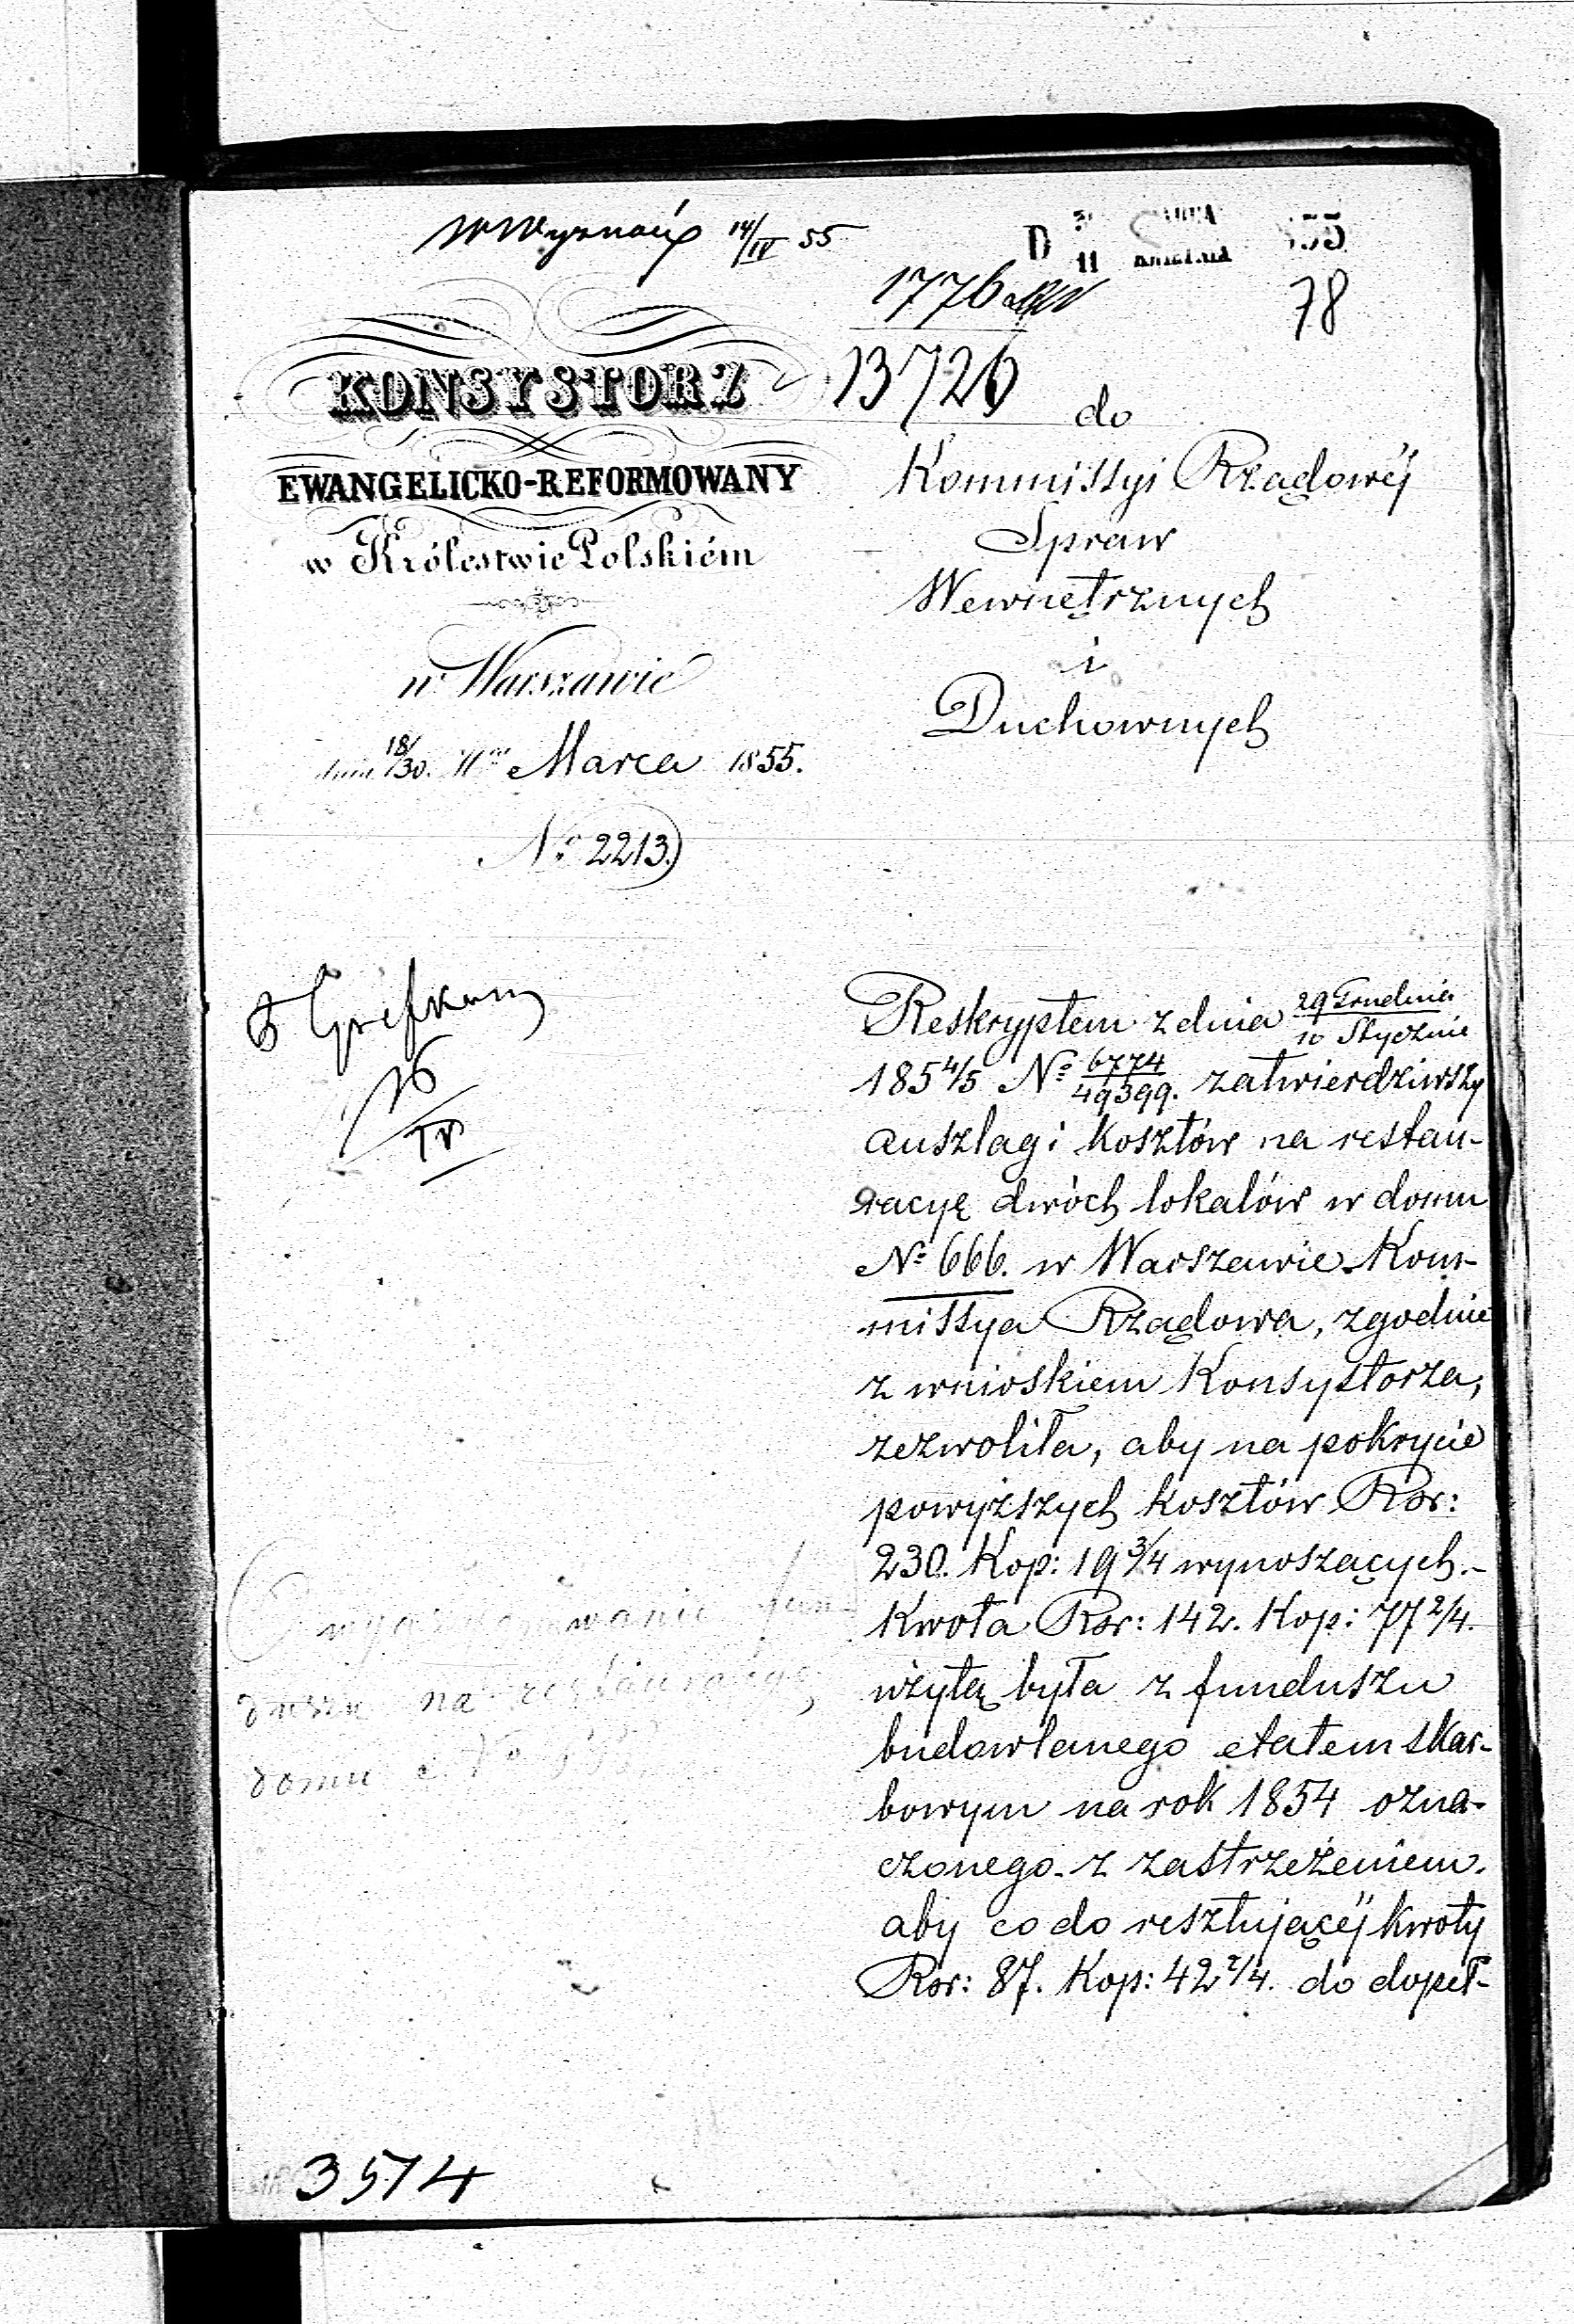 W Wyznań 14/IV 55
D 11 KWIETNIA 55
1776
78
13726
KONSYSTORZ
EWANGELICKO-REFORMOWANY
w Królestwie Polskiém
w Warszawie
dnia 18/30. Mca Marca 1855.
No 2213.
do
Kommissyi Rządowéj
Spraw
Wewnętrznych
i
Duchownych
16/IV
Reskryptem z dnia 29 Grudnia/10 Stycznia
1854/5 No 6774/49399. zatwierdziwszy
anszlagi kosztów na restau-
racyę dwóch lokalów w domu
No 666. w Warszawie Kom-
missya Rządowa, zgodnie
z wnioskiem Konsystorza,
zezwoliła, aby na pokrycie
powyższych kosztów Rsr:
230. Kop: 19 3/4 wynoszących.-
Kwota Rsr: 142. Kop: 77 2/4.
użytą była z funduszu
budowlanego etatem skar-
bowym na rok 1854 ozna-
czonego. z zastrzeżeniem.
aby co do resztującéj kwoty
Rsr: 87. Kop: 42 2/4. do dopeł-
fun-
duszu na restauracyę
domu No
3514